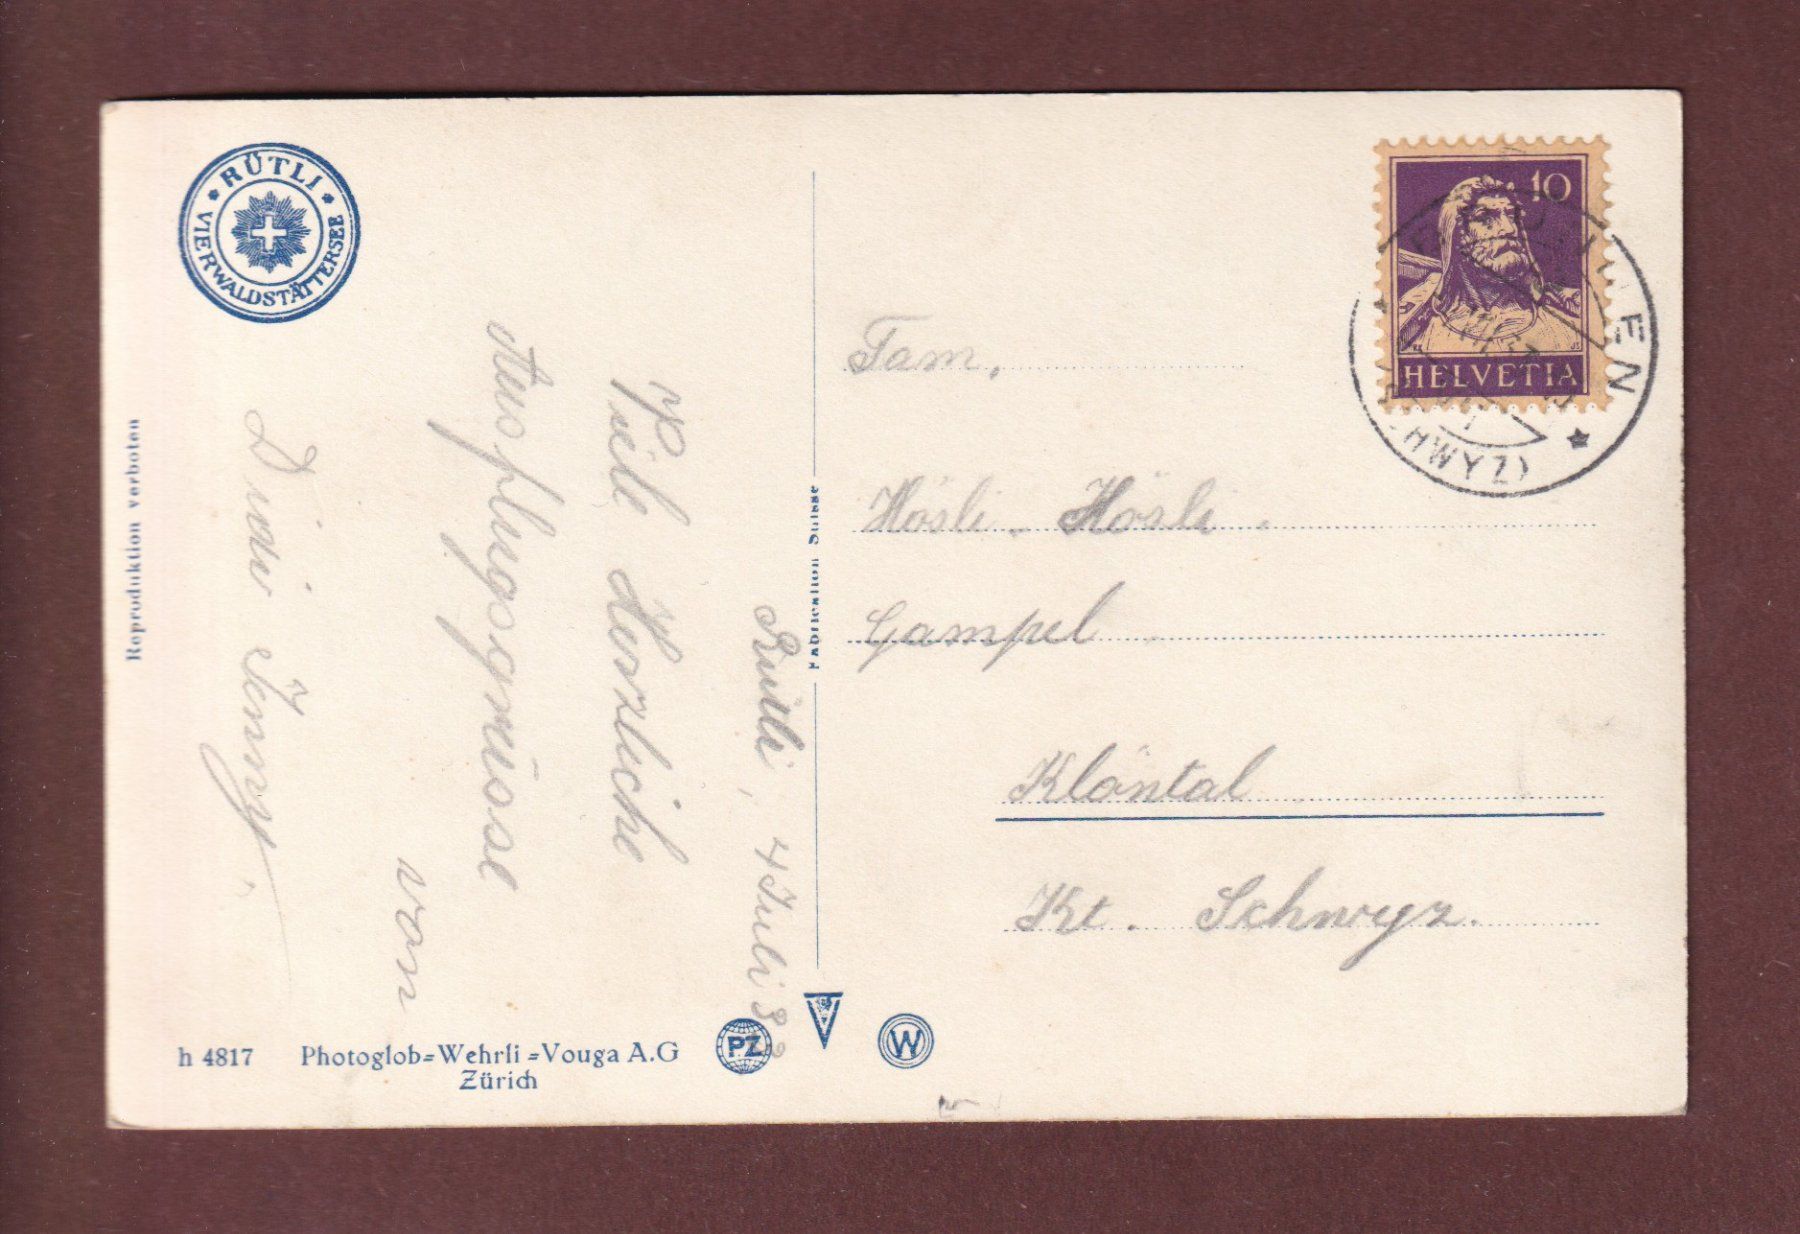 RÜTLI
VIERWALDSTÄTTERSEE
Reproduktion verboten
Rütli, 4 Juli 3
Viele Herzliche
Ausflugsgrüsse
von
Fabrication Suisse
10
HELVETIA
(SCHWYZ)
Fam.
Hösli - Hösli.
Gampel
Klöntal
Kt. Schwyz.
h 4817 Photoglob=Wehrli=Vouga A.G
Zürich
PZ
V
W